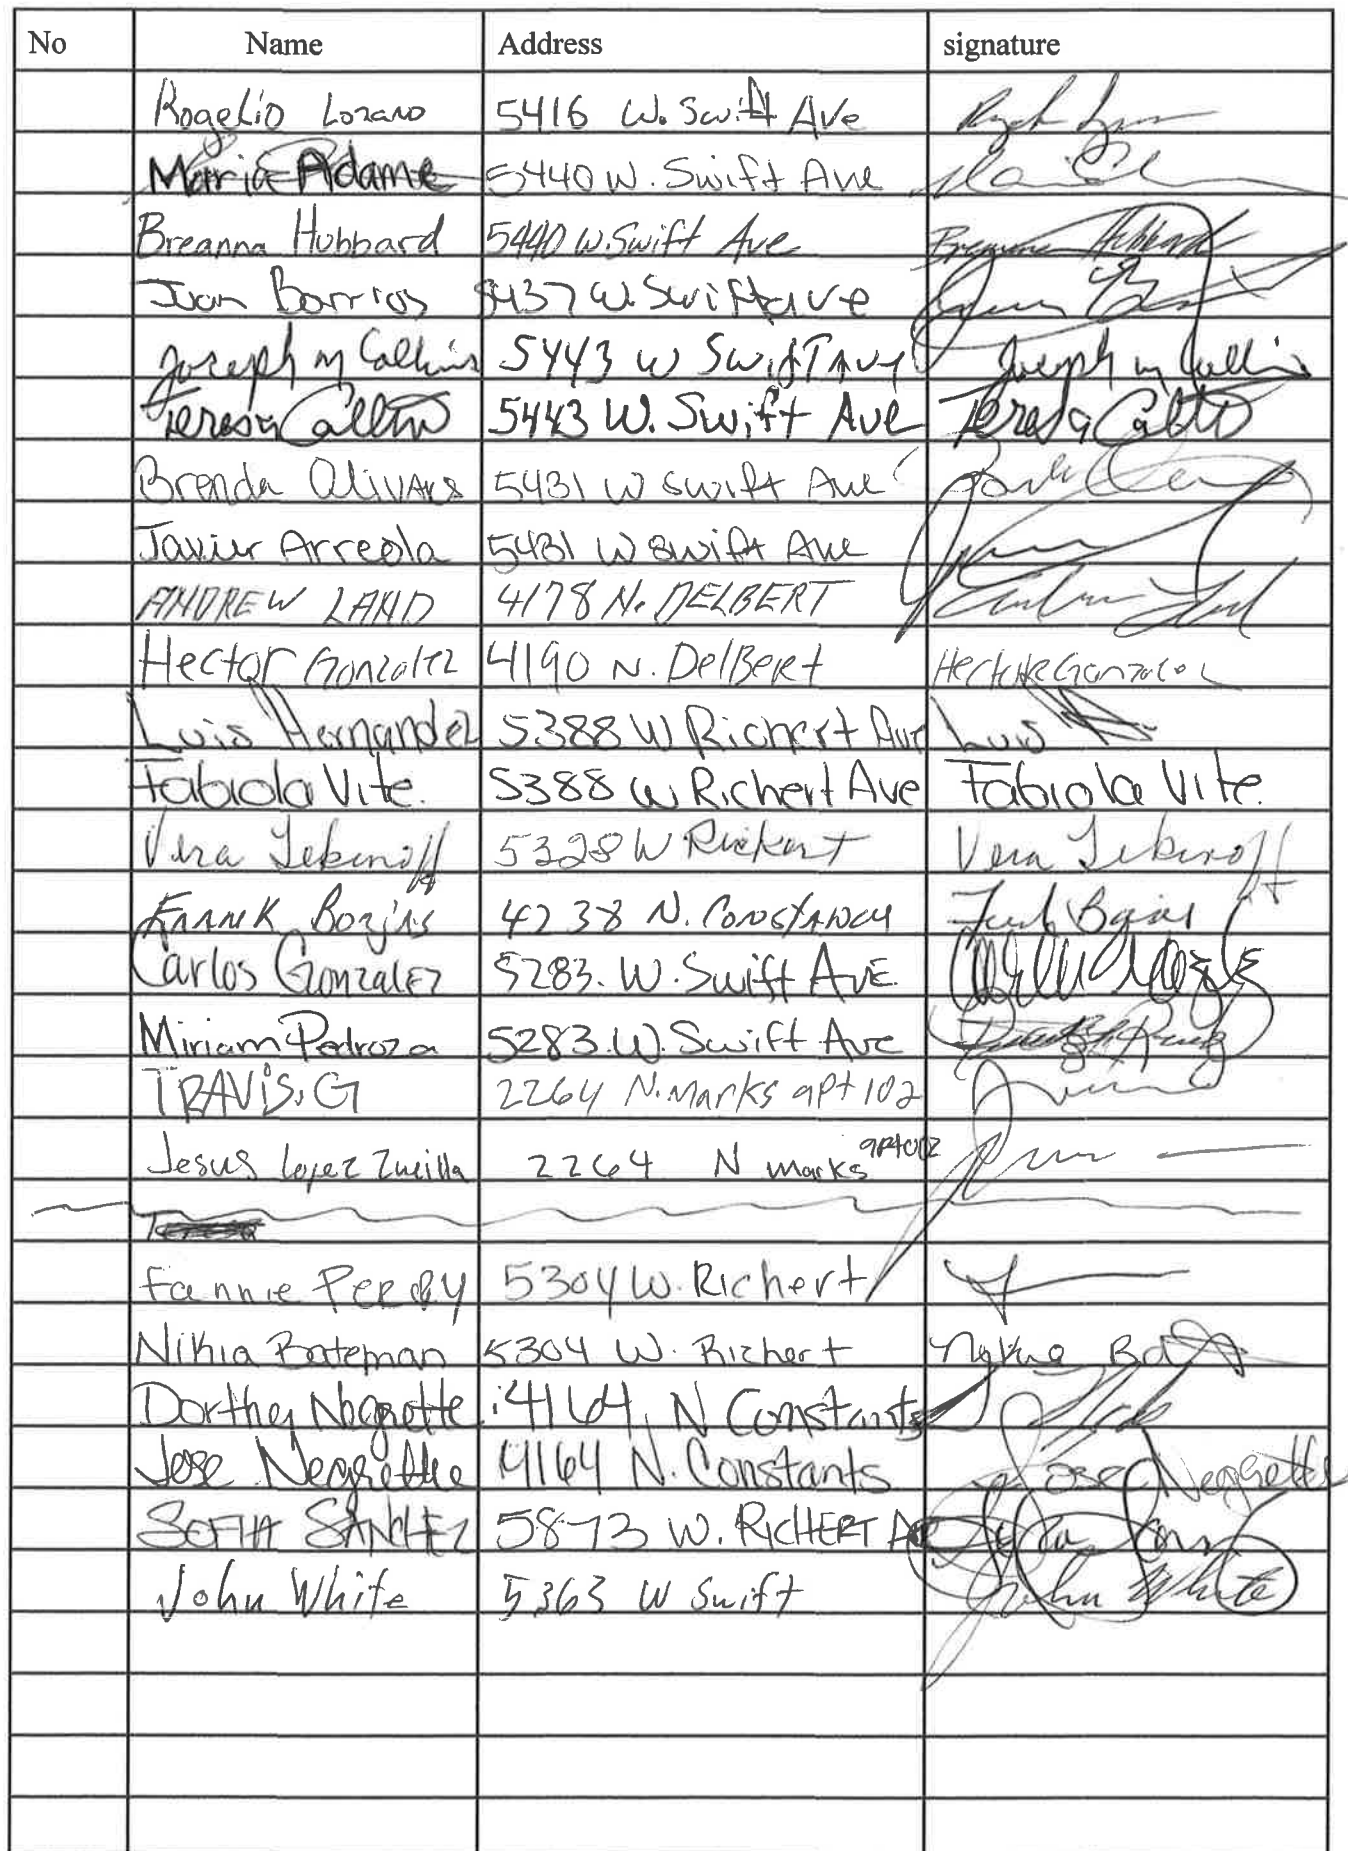 No Name Address signature
Rogelio Lozano 5416 W. Swift Ave
Maria Adame 5440 W. Swift Ave
Breanna Hubbard 5440 W. Swift Ave Breanna Hubbard
Juan Barrios 5437 W. Swift ave
Joseph m Collins 5443 W Swift Ave Joseph m Collins
Teresa 5443 W. Swift Ave Teresa
Brenda Olivars 5431 W Swift Ave
Javier Arreola 5431 W Swift Ave
ANDREW LAND 4178 N. DELBERT
Hector Gonzalez 4190 N. DelBert
Luis Hernandez 5388 W Richert Ave Luis
Fabiola Vite. 5388 W Richert Ave Fabiola Vite.
Vera 5328 W Vera
FRANK 4238 N. CONSTANCY
Carlos Gonzalez 5283. W. Swift AVE.
Miriam Pedroza 5283. W. Swift Ave
TRAVIS. G 2264 N. Marks apt 102
Jesus Lopez 2264 N marks
Fannie 5304 W. Richert
Nikia Bateman 5304 W. Richert
4164 N Constants
Jose Negrette 4164 N. Constants Jose Negrette
SOFIA SANCHEZ 5873 W. RICHERT
John White 5363 W Swift John White